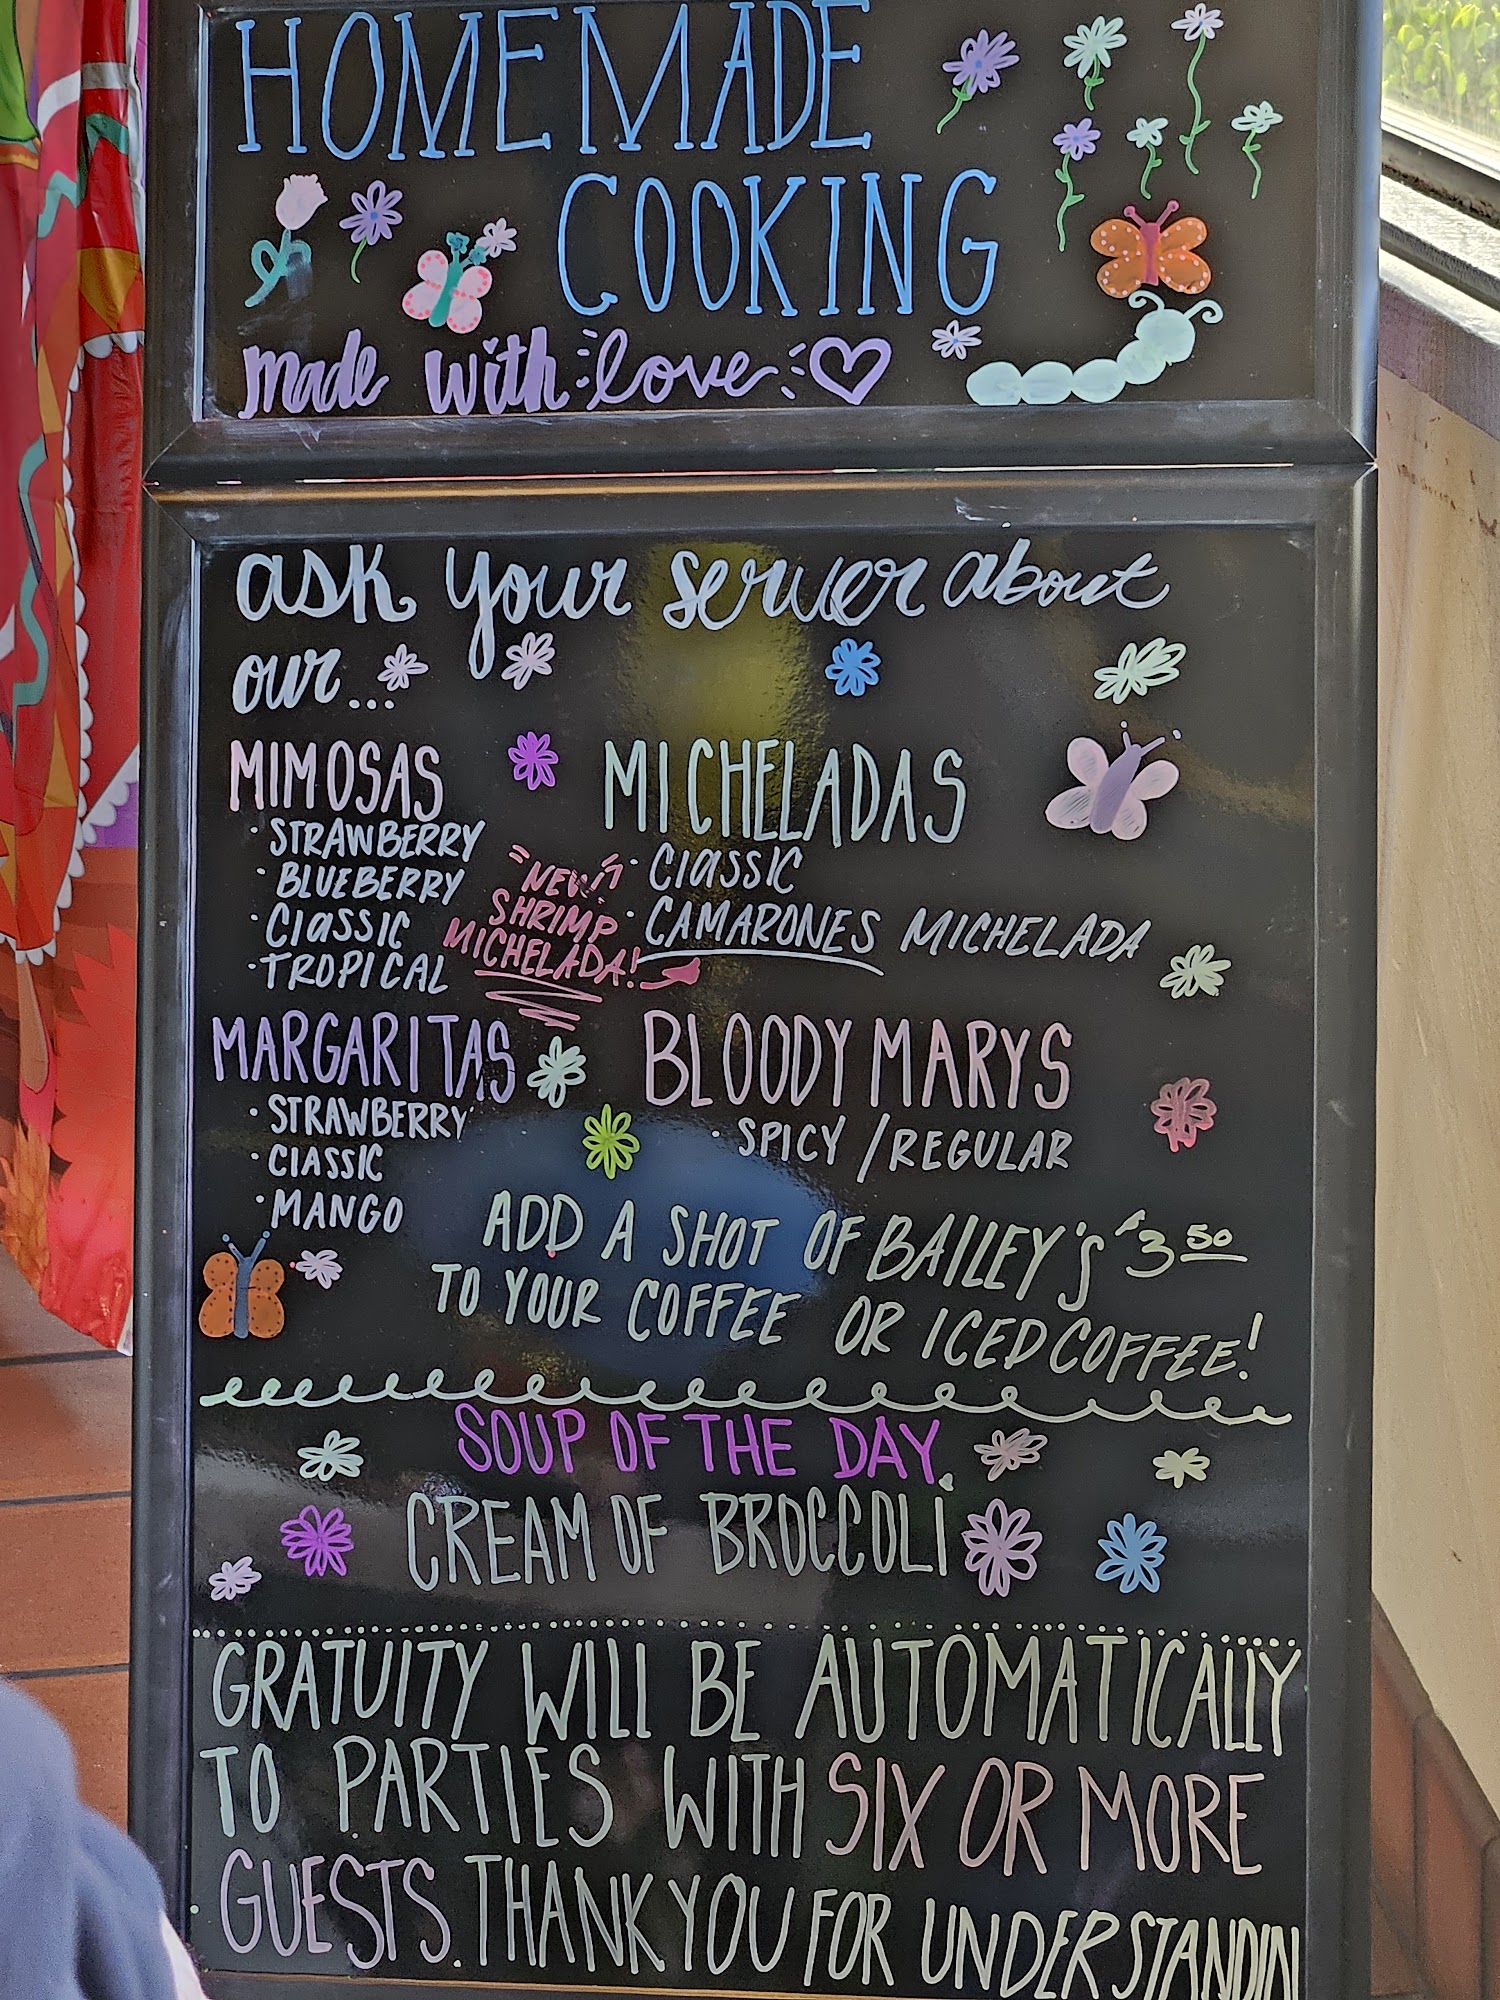 HOMEMADE
COOKING
made with love
ask your server about
our...
MIMOSAS
· STRAWBERRY
· BLUEBERRY
· ClaSSIC
· TROPICAL
"NEW!"
SHRIMP
MICHELADA!
MICHELADAS
· ClaSSIC
· CAMARONES MICHELADA
MARGARITAS
· STRAWBERRY
· ClASSIC
· MANGO
BLOODY MARYS
· SPICY / REGULAR
ADD A SHOT OF BAILEY'S $3 50
TO YOUR COFFEE OR ICED COFFEE!
SOUP OF THE DAY
CREAM OF BROCCOLI
GRATUITY WILL BE AUTOMATICALLY
TO PARTIES WITH SIX OR MORE
GUESTS. THANK YOU FOR UNDERSTANDIN